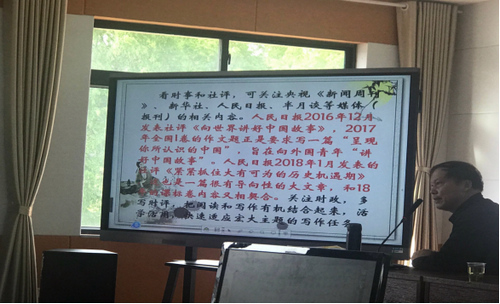 看时事和社评，可关注央视《新闻周刊
》、新华社、人民日报、半月谈等媒体（
报刊）的相关内容。人民日报2016年12月
发表社评《向世界讲好中国故事》，2017
年全国1卷的作文题正是要求写一篇“呈现
你所认识的中国”，旨在向外国青年“讲
好中国故事”。人民日报2018年1月发表的
社评《紧紧抓住大有可为的历史机遇期》
也是一篇很有导向性的大文章，和18
内容又相契合。关注时政，多
写时评，把阅读和写作有机结合起来，活
学活用，快速适应宏大主题的写作任务